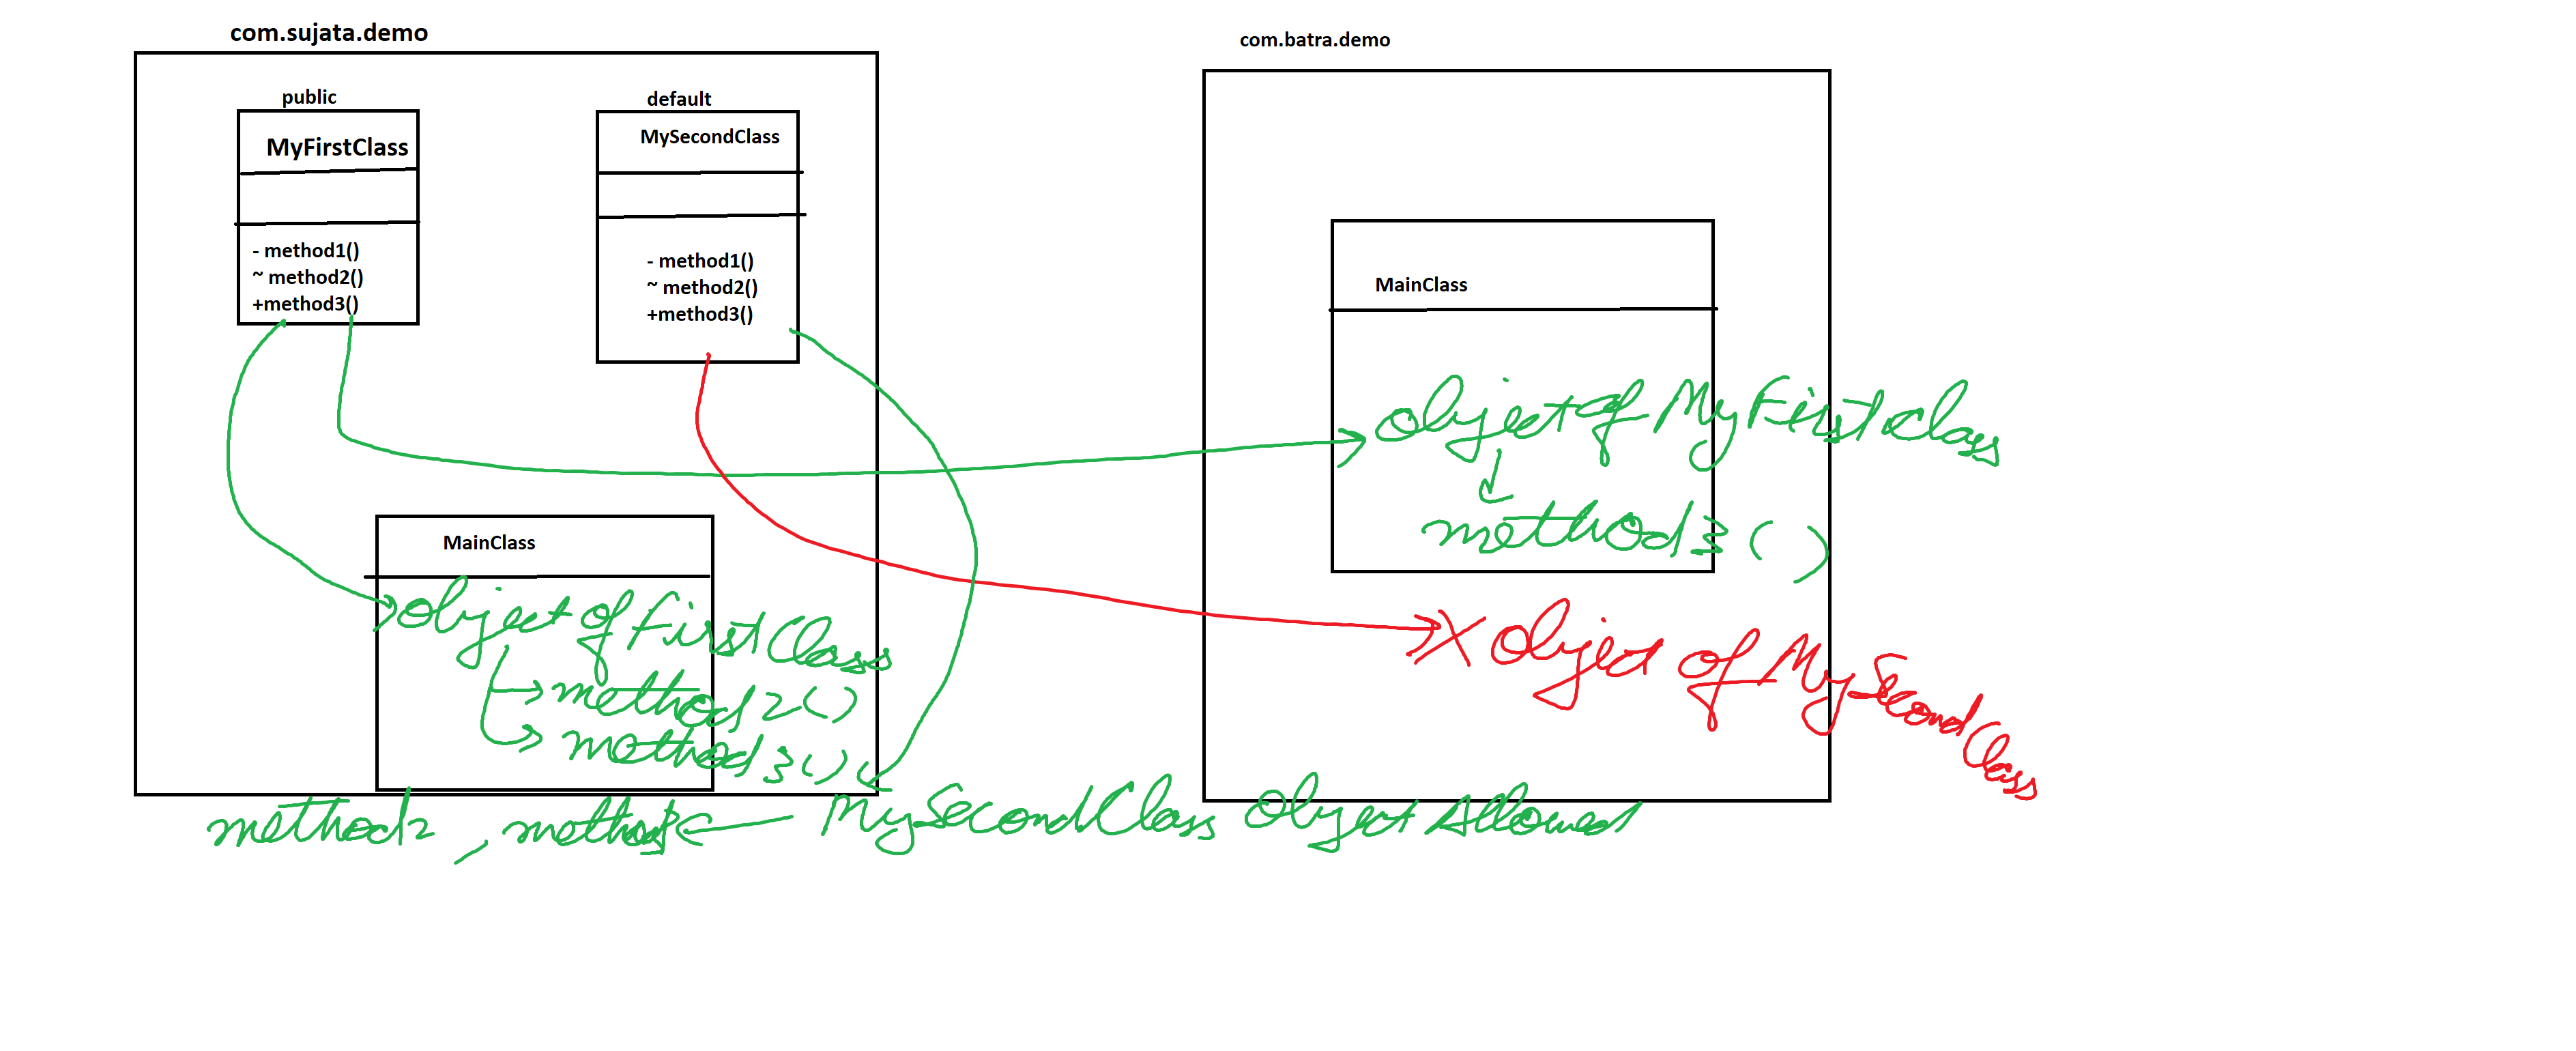 com.sujata.demo
public
MyFirstClass
- method1()
~ method2()
+method3()
default
MySecondClass
- method1()
~ method2()
+method3()
MainClass
object of First Class
method2()
method3()
method2, method
MySecondClass Object Allowed
com.batra.demo
MainClass
object of MyFirst Class
method3()
X Object of MySecond Class